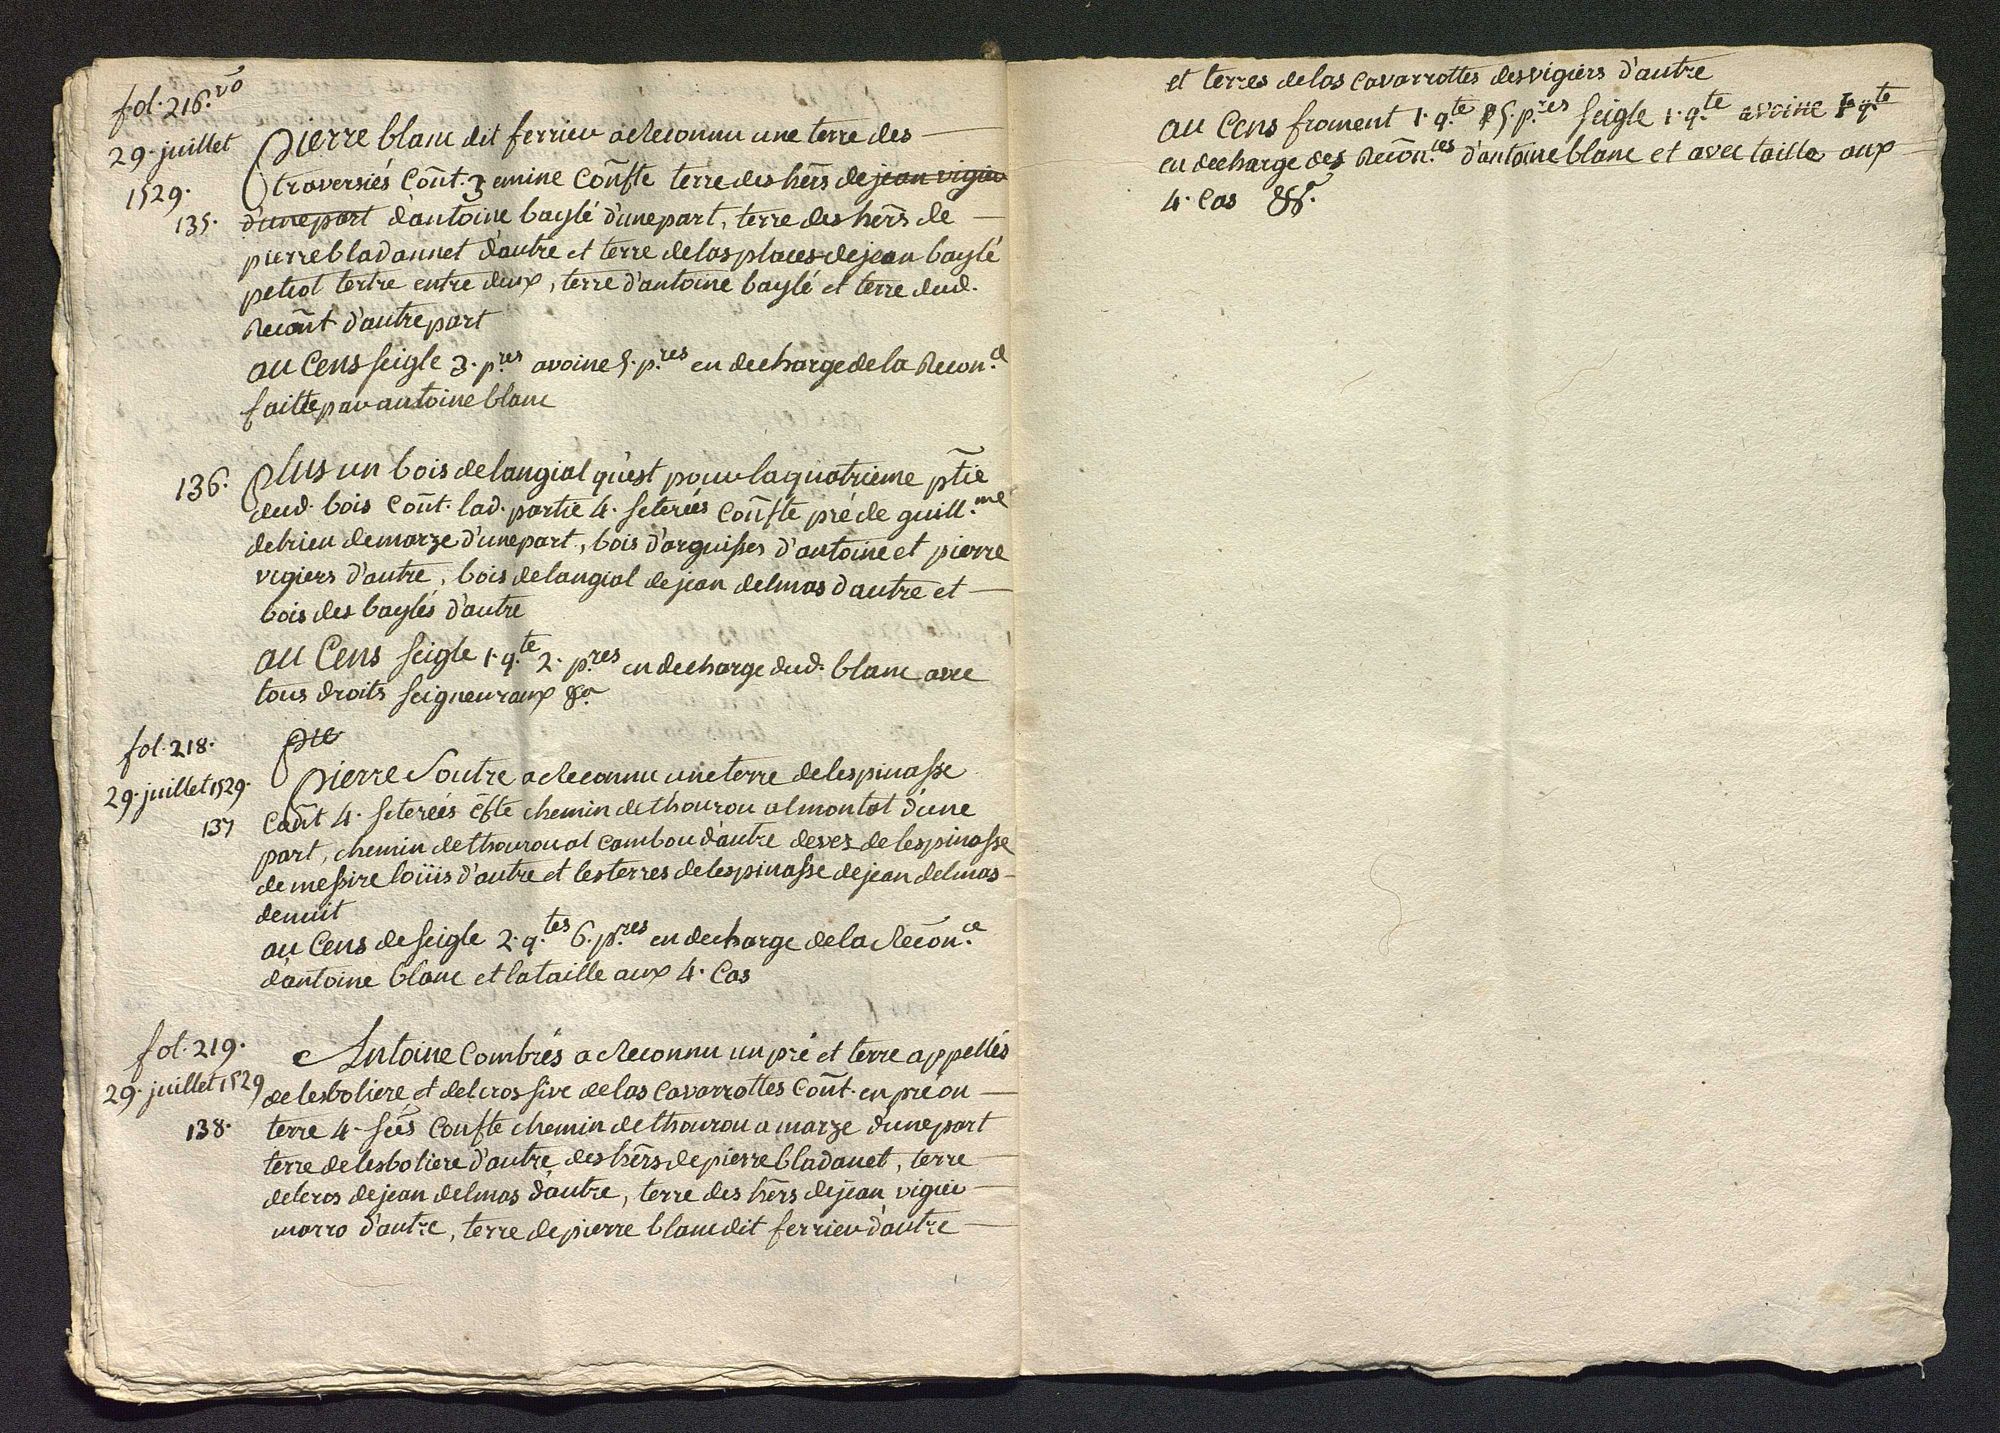 fol. 216. vo
29. juillet
1529.
135.
Pierre blanc dit ferrieu a Reconnu une terre des
traversiés Coñt. 3 emine Coñfte terre des hẽrs de jean vigier
d'une part d'antoine baylé d'une part, terre des hẽrs de
pierre bladannet d'autre et terre de las places de jean baylé
petiot tertre entre deux, terre d'antoine baylé et terre dud.
Recoñt d'autre part
au Cens seigle 3. p.res avoine 5. p.res en decharge de la Recon.ce
faitte par antoine blanc
136.
Plus un bois de langial qu'est pour la quatrieme ptĩe
dud. bois Coñt. lad. partie 4. seterées Coñfte pré de guill.me
delrieu de marze d'une part, bois d'arguisses d'antoine et pierre
vigiers d'autre, bois de langial de jean delmas d'autre et
bois des baylés d'autre
au Cens seigle 1. q.te 2. p.res en decharge dud. blanc avec
tous droits seigneuraux &a
fol. 218.
29. juillet 1529.
137
Pie
Pierre Soutre a Reconnu une terre de lespinasse
Coñt 4. seterées c̃fte chemin de thourou al montat d'une
part, chemin de thourou al cambou d'autre devez de lespinasse
de messire loüis d'autre et les terres de lespinasse de jean delmas
de nuit
au Cens de seigle 2. q.tes 6. p.res en decharge de la Recõn.ce
d'antoine blanc et la taille aux 4. Cas
fol. 219.
29. juillet 1529
138.
Antoine Combrés a Reconnu un pré et terre appellés
de lesboliere et delcros sive de las Cavarrottes Coñt. en pré ou
terre 4. seés Confte chemin de thourou a marze d'une part
terre de lesboliere d'autre des hẽrs de pierre bladanet, terre
delcros de jean delmas d'autre, terre des hẽrs de jean vigier
marro d'autre, terre de pierre blanc dit ferrieu d'autre
et terres de las Cavarrottes des vigiers d'autre
au Cens froment 1. q.te 5. p.res seigle 1. q.te avoine 1 q.te
en decharge des Recõn.ces d'antoine blanc et avec taille aux
4. Cas &a.